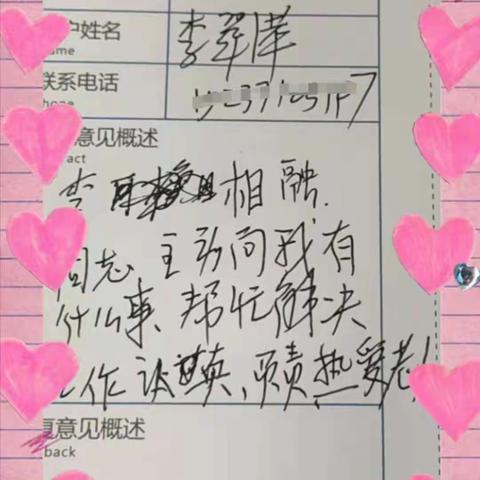 户姓名
ame
联系电话
hone
意见概述
act
李 相融
同志、主动向我有
什么事、帮忙解决
工作认真、负责热爱老人
复意见概述
back